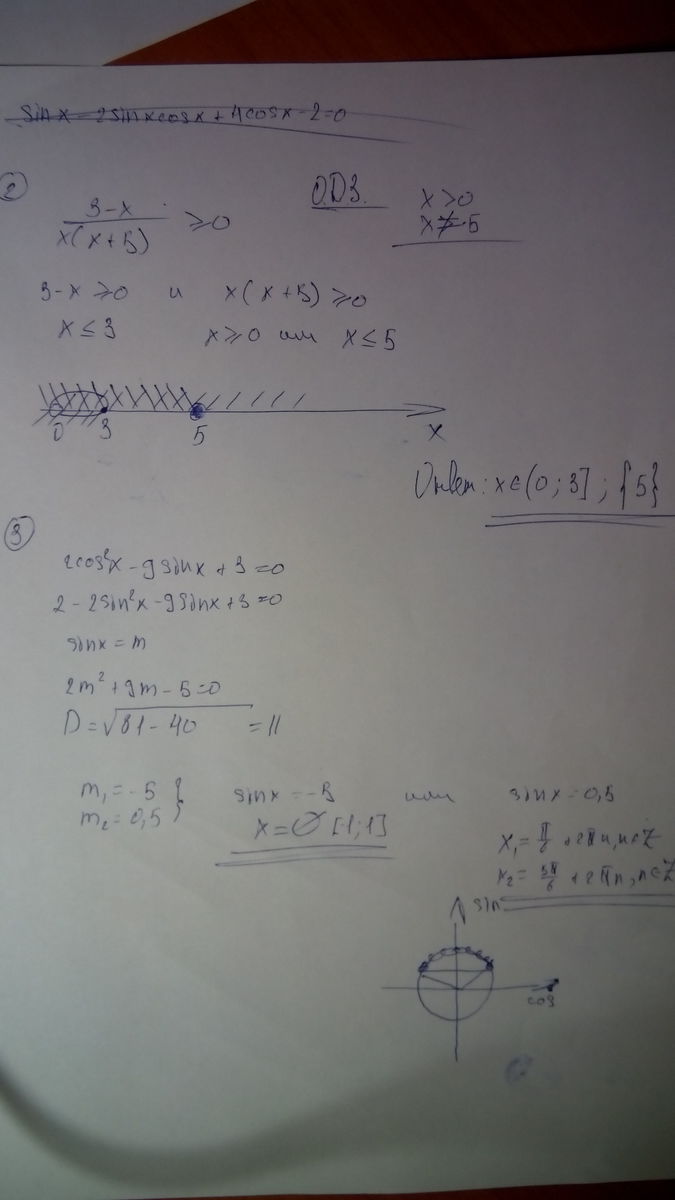 sinx - 2sinxcosx + 4cosx - 2 = 0
② (3-x)/(x(x+5)) ≥ 0
О.Д.З. x > 0
x ≠ -5
3-x ≥ 0 и x(x+5) ≥ 0
x ≤ 3 x ≥ 0 или x ≤ 5
0 3 5 x
Ответ: x ∈ (0; 3] ; {5}
③
2cos²x - 9sinx + 3 = 0
2 - 2sin²x - 9sinx + 3 = 0
sinx = m
2m² + 9m - 5 = 0
D = √81 - 40 = 11
m₁ = -5 } sinx = -5 или sinx = 0,5
m₂ = 0,5 x = ∅ [-1; 1]
x₁ = π/6 + 2πn, n∈Z
x₂ = 5π/6 + 2πn, n∈Z
sin
cos